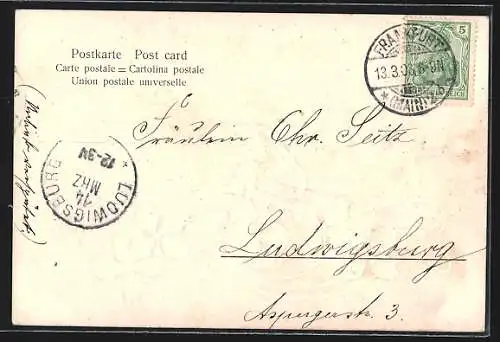 Postkarte Post card
Carte postale = Cartolina postale
Union postale universelle
5
FRANKFURT
13.3.
(MAIN)
REICH
Fräulein Chr. Seitz
LUDWIGSBURG
14
MRZ
12-3N
Ludwigsburg
Aspergerstr. 3.